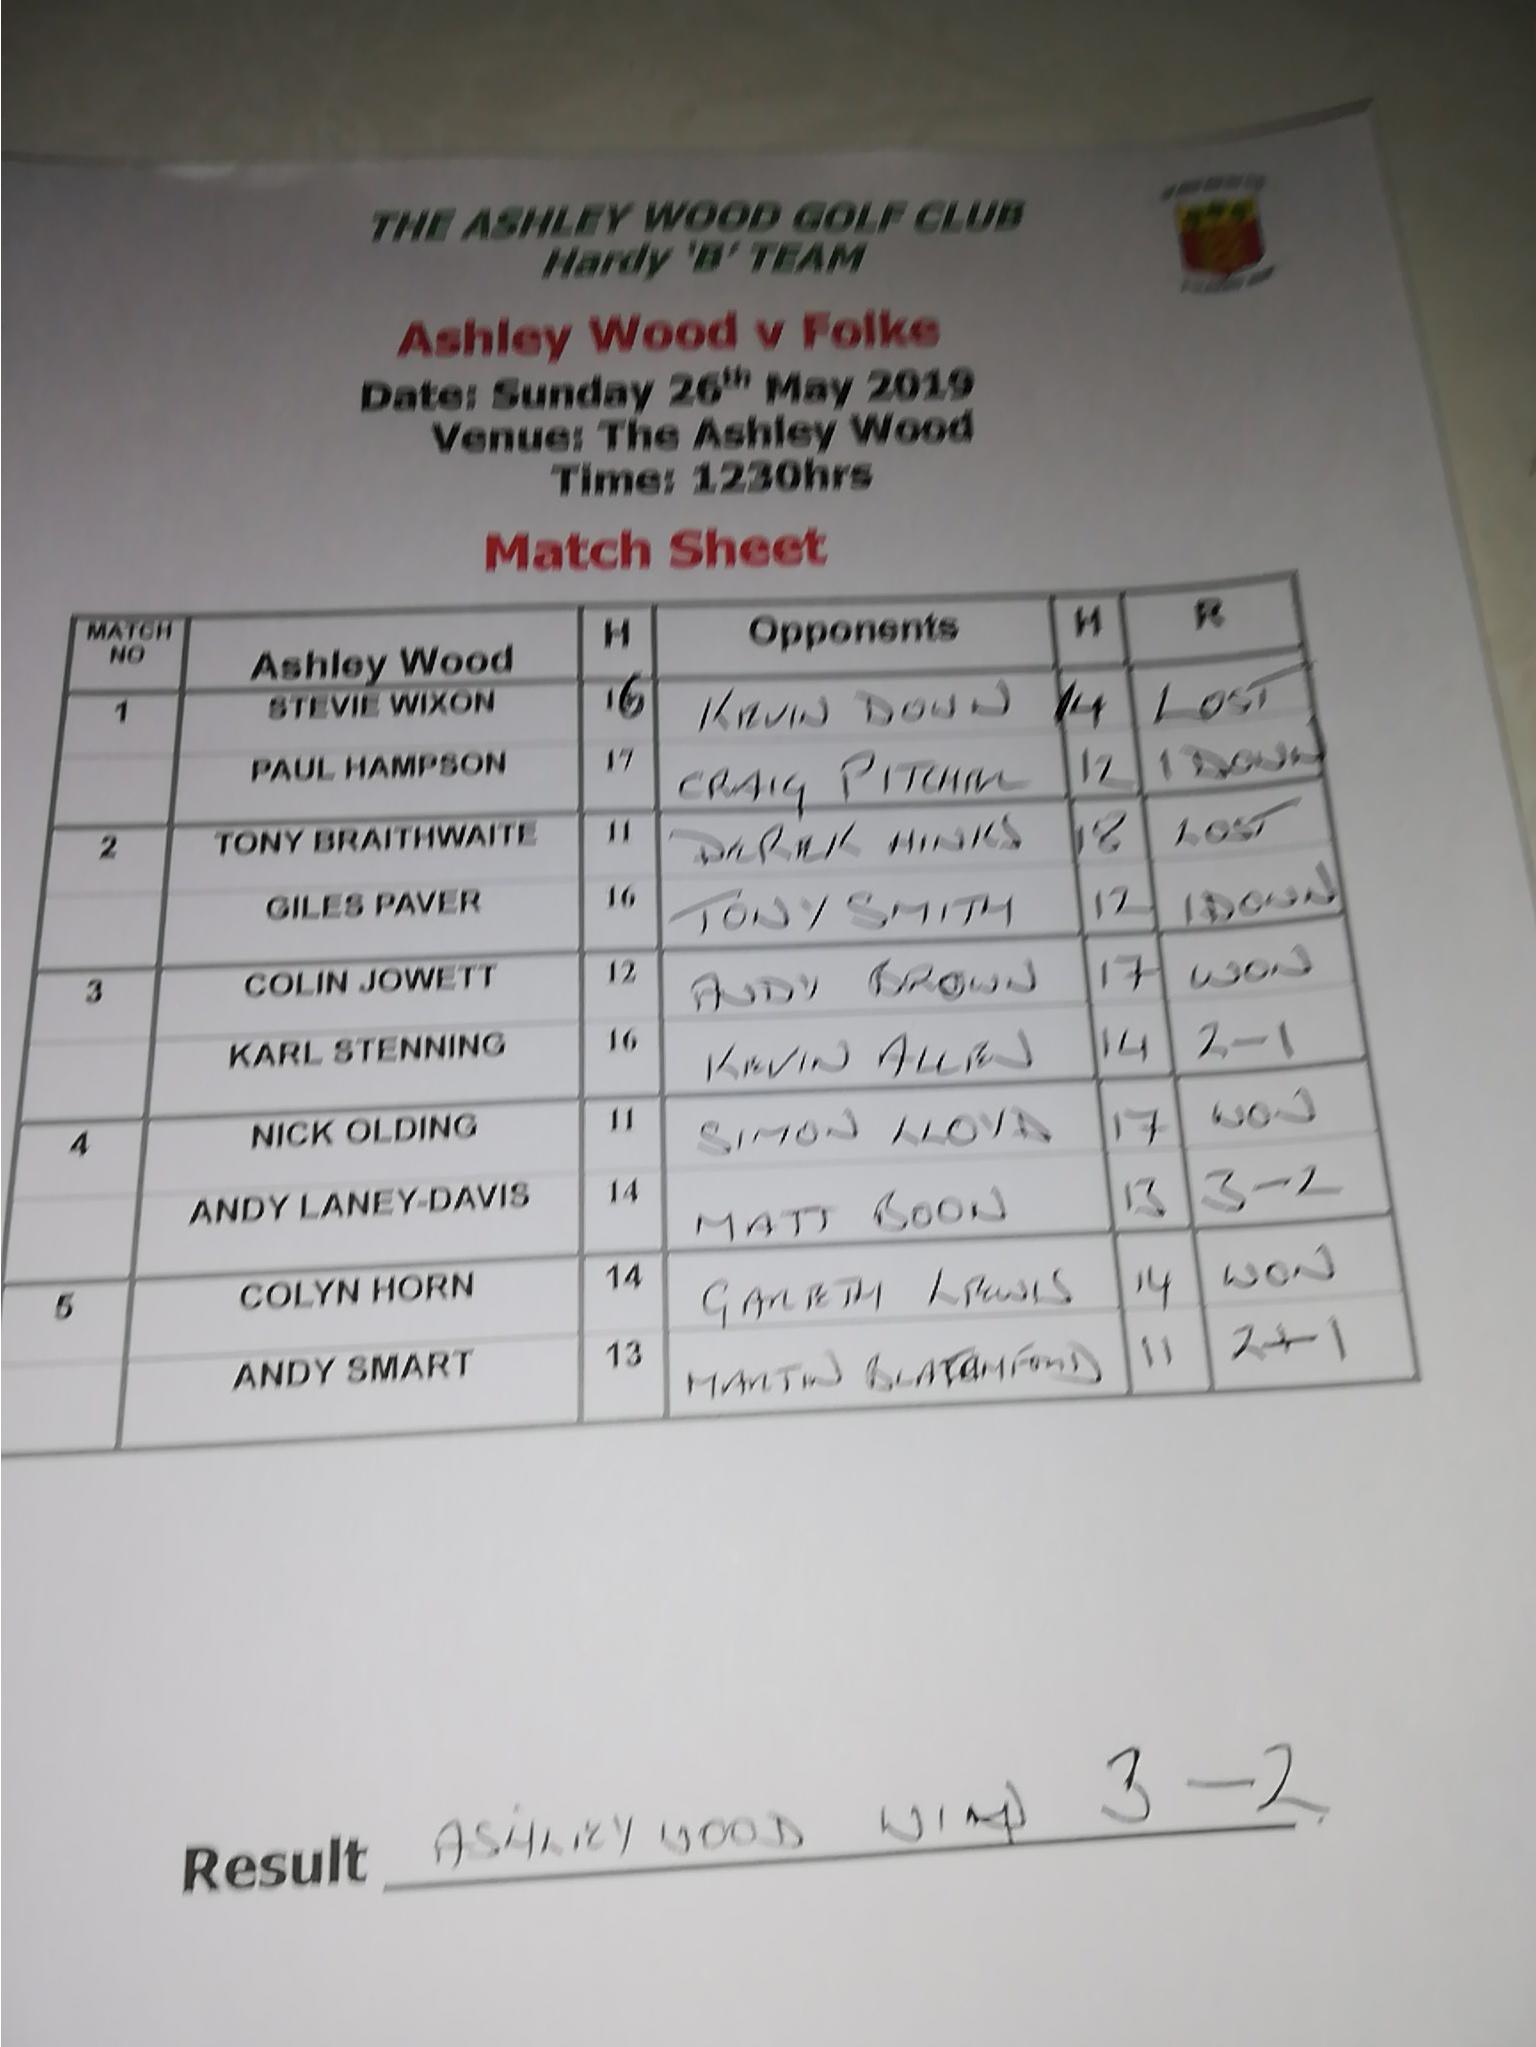 THE ASHLEY WOOD GOLF CLUB
Hardy 'B' TEAM
Ashley Wood v Folke
Date: Sunday 26th May 2019
Venue: The Ashley Wood
Time: 1230hrs
Match Sheet
MATCH NO Ashley Wood H Opponents H R
1 STEVIE WIXON 16 KEVIN DOWN 14 LOST
PAUL HAMPSON 17 CRAIG PITCHER 12 1 DOWN
2 TONY BRAITHWAITE 11 DEREK HINKS 18 LOST
GILES PAVER 16 TONY SMITH 12 1 DOWN
3 COLIN JOWETT 12 ANDY BROWN 17 WON
KARL STENNING 16 KEVIN ALLEN 14 2-1
4 NICK OLDING 11 SIMON LLOYD 17 WON
ANDY LANEY-DAVIS 14 MATT BOON 13 3-2
5 COLYN HORN 14 GARETH LEWIS 14 WON
ANDY SMART 13 MARTIN BLATCHFORD 11 2+1
Result ASHLEY WOOD 3-2